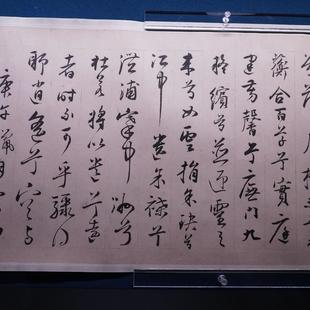 蘅合百草兮實庭
建芳馨兮廡門九
繽兮並迎靈之
来兮如雲捐余玦兮
江中遺余褋兮
浦搴中洲兮
杜若將以遺兮遠
者時不可乎驟得
聊逍遥兮容与
庚午臘月